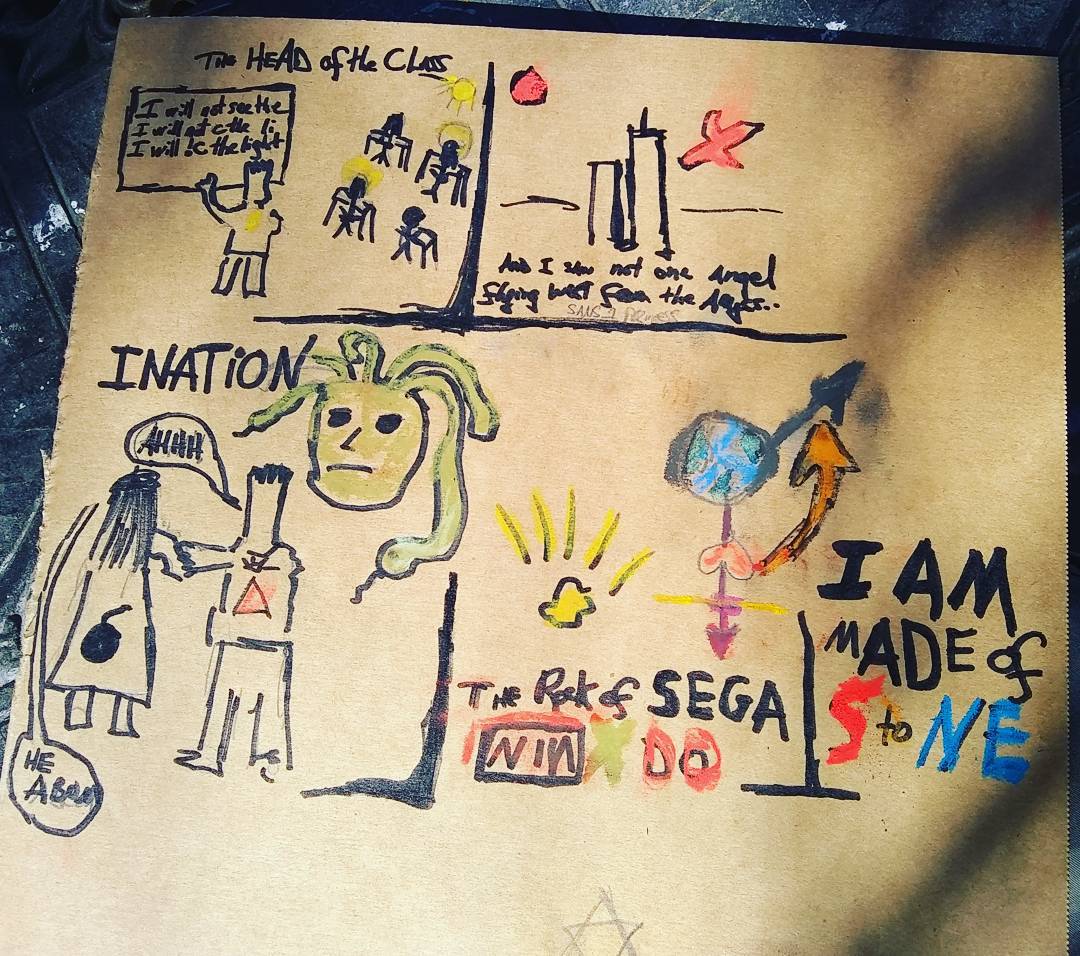 The HEAD of the Class
I will not see the
I will not c the li
I will be the light
And I saw not one angel
flying west from the
INATION
AHHH
HE
The Rock of SEGA
NIN X DO
I AM
MADE of
S to NE